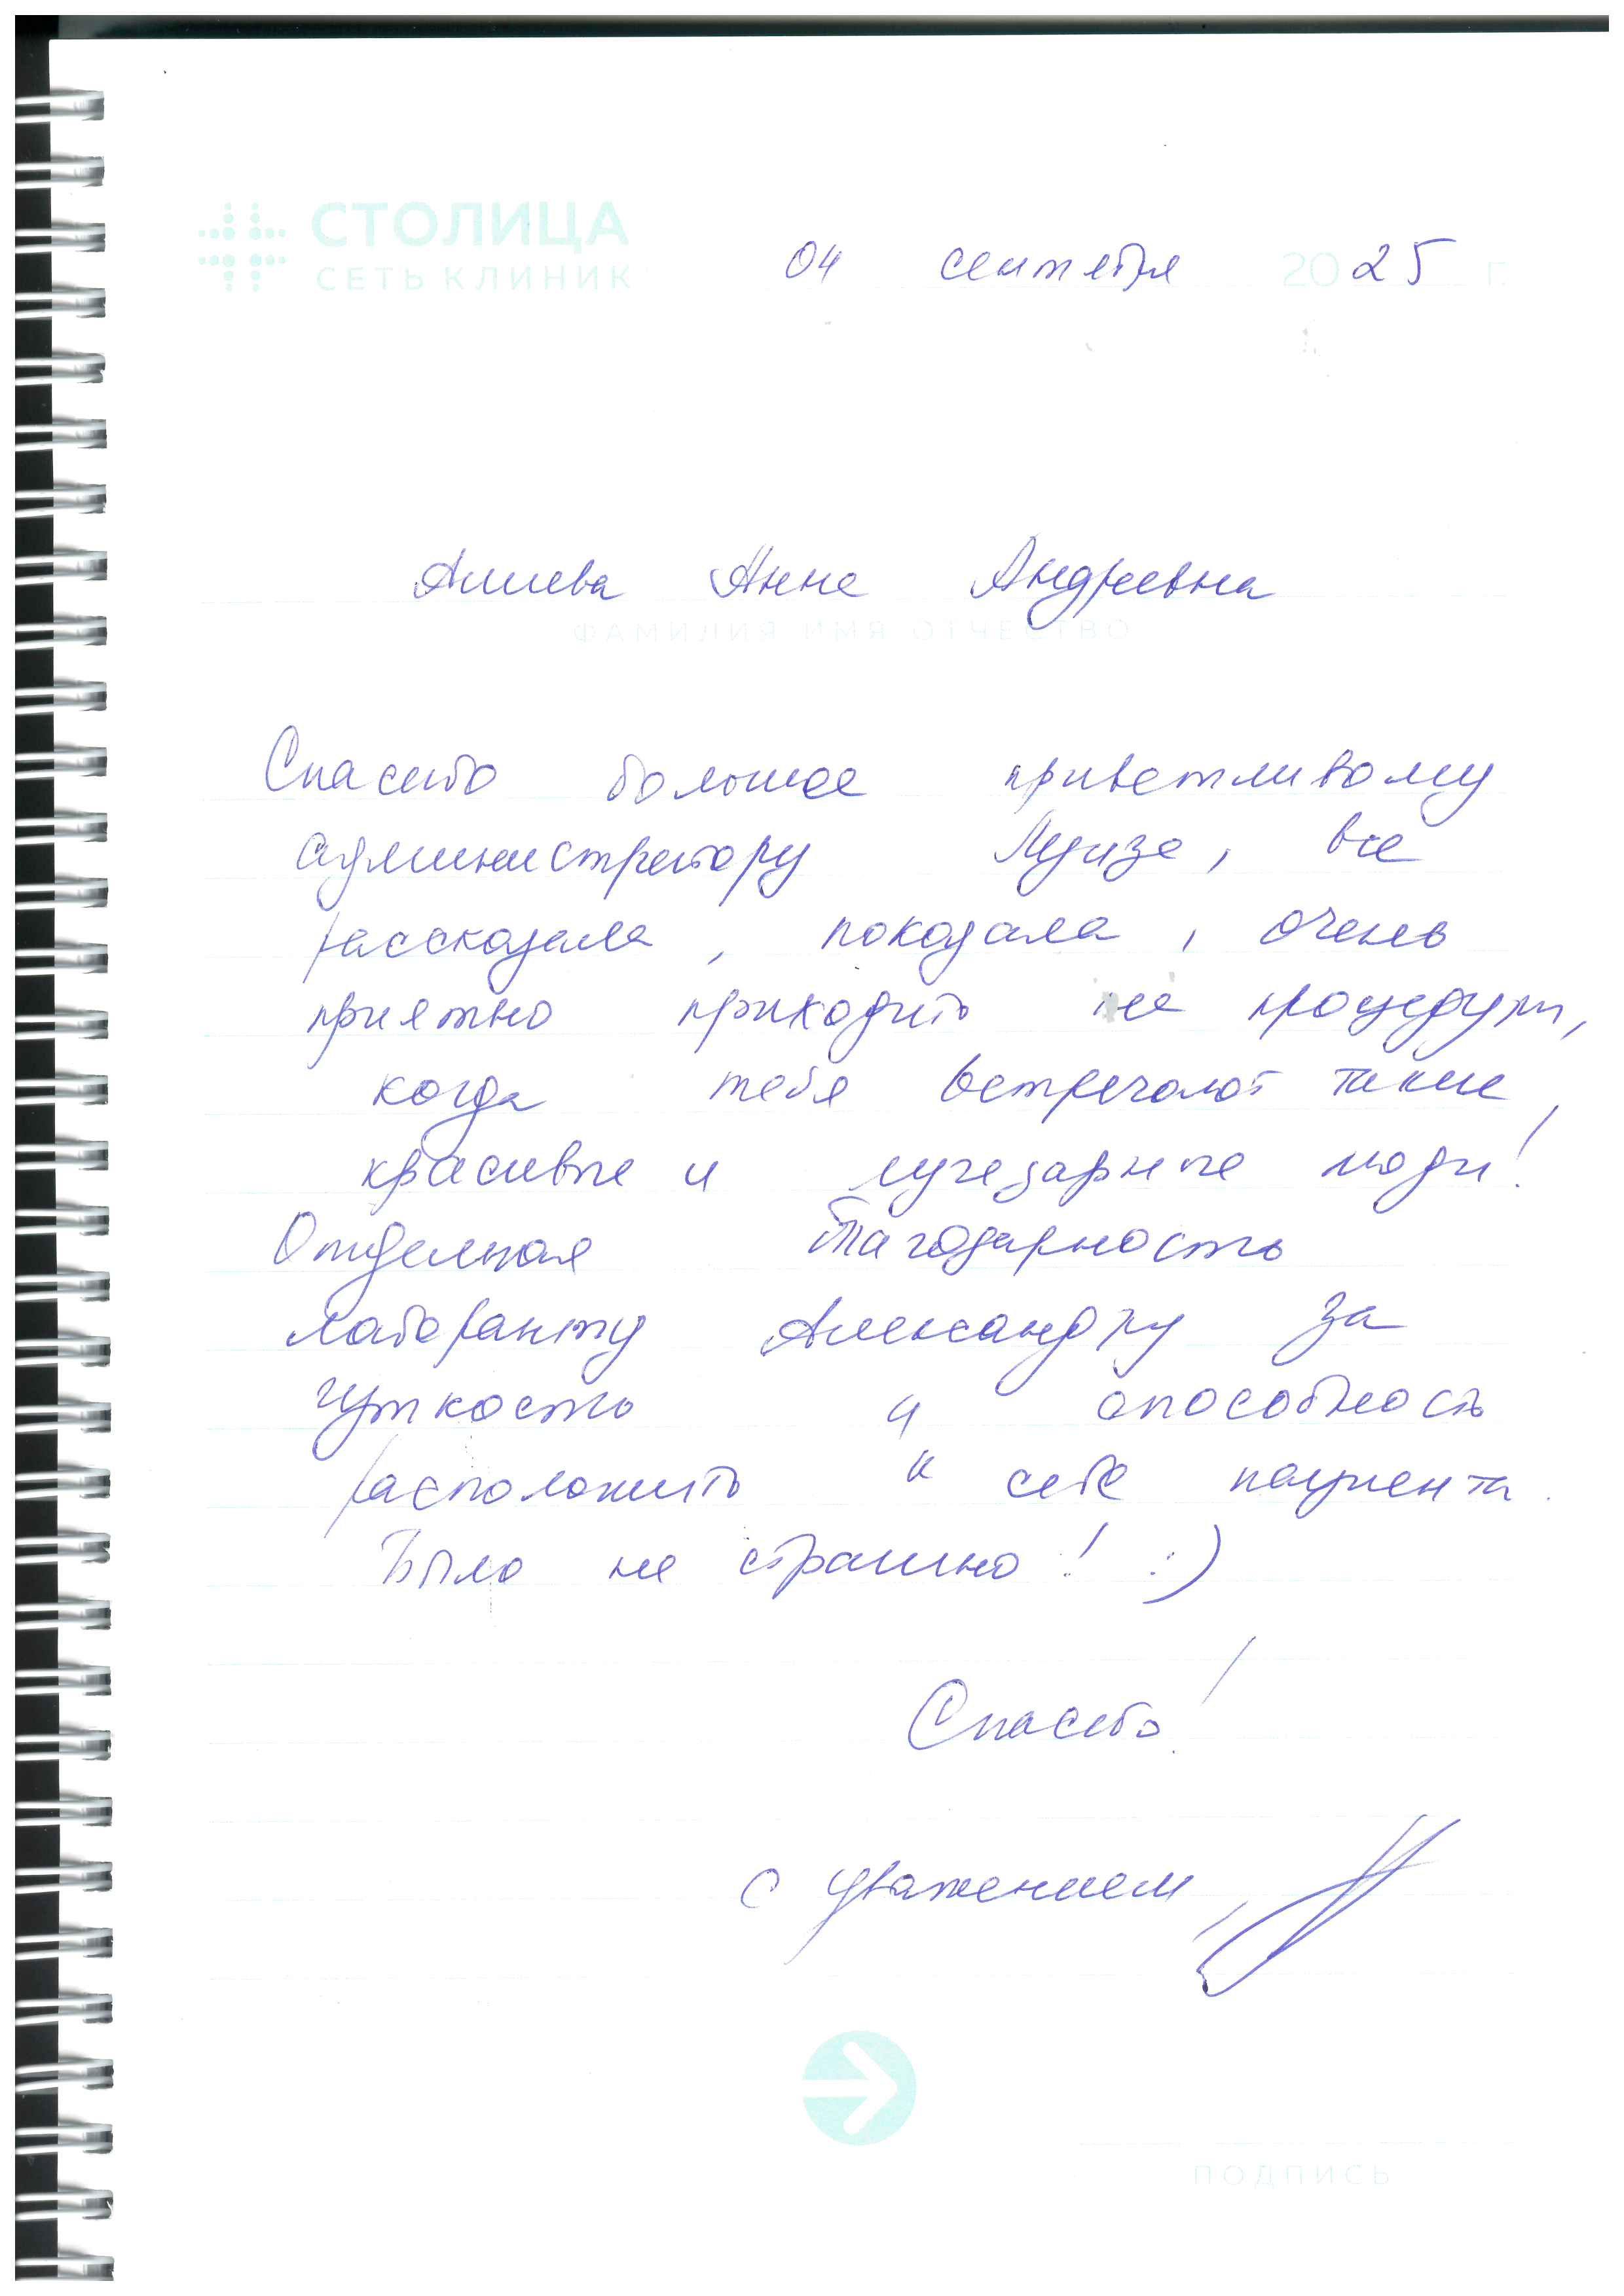 СТОЛИЦА
СЕТЬ КЛИНИК
04 сентября 2025 г.
Алиева Анна Андреевна
ФАМИЛИЯ ИМЯ ОТЧЕСТВО
Спасибо большое приветливому
администратору Луизе, все
рассказала, показала, очень
приятно приходить на процедуры,
когда тебя встречают такие
красивые и лучезарные люди!
Отдельная благодарность
лаборанту Александру за
чуткость и способность
расположить к себе пациента.
Было не страшно! :)
Спасибо!
С уважением,
ПОДПИСЬ